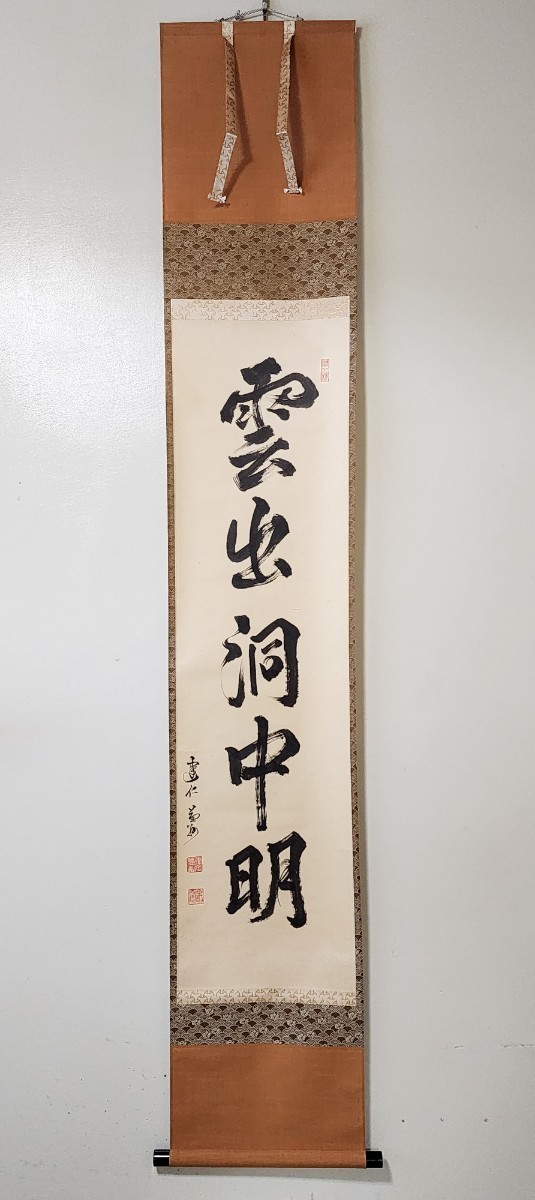 雲出洞中明
建仁